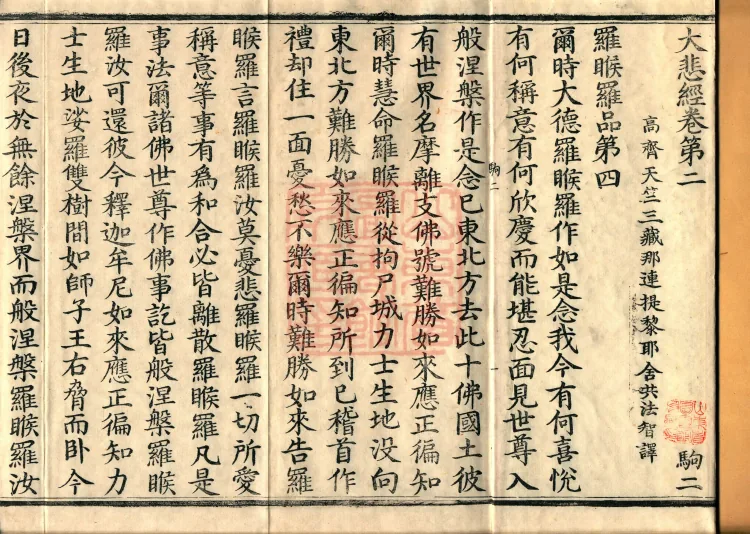 大悲經卷第二
駒二
高齊天竺三藏那連提黎耶舍共法智譯
羅睺羅品第四
爾時大德羅睺羅作如是念我今有何喜悅
有何稱意有何欣慶而能堪忍面見世尊入
般涅槃作是念已東北方去此十佛國土彼
駒二
有世界名摩離支佛號難勝如來應正徧知
爾時慧命羅睺羅從拘尸城力士生地没向
東北方難勝如來應正徧知所到已稽首作
禮却住一面憂愁不樂爾時難勝如來告羅
睺羅言羅睺羅汝莫憂悲羅睺羅一切所愛
稱意等事有為和合必皆離散羅睺羅凡是
事法爾諸佛世尊作佛事訖皆般涅槃羅睺
羅汝可還彼今釋迦牟尼如來應正徧知力
士生地娑羅雙樹間如師子王右脅而卧今
日後夜於無餘涅槃界而般涅槃羅睺羅汝